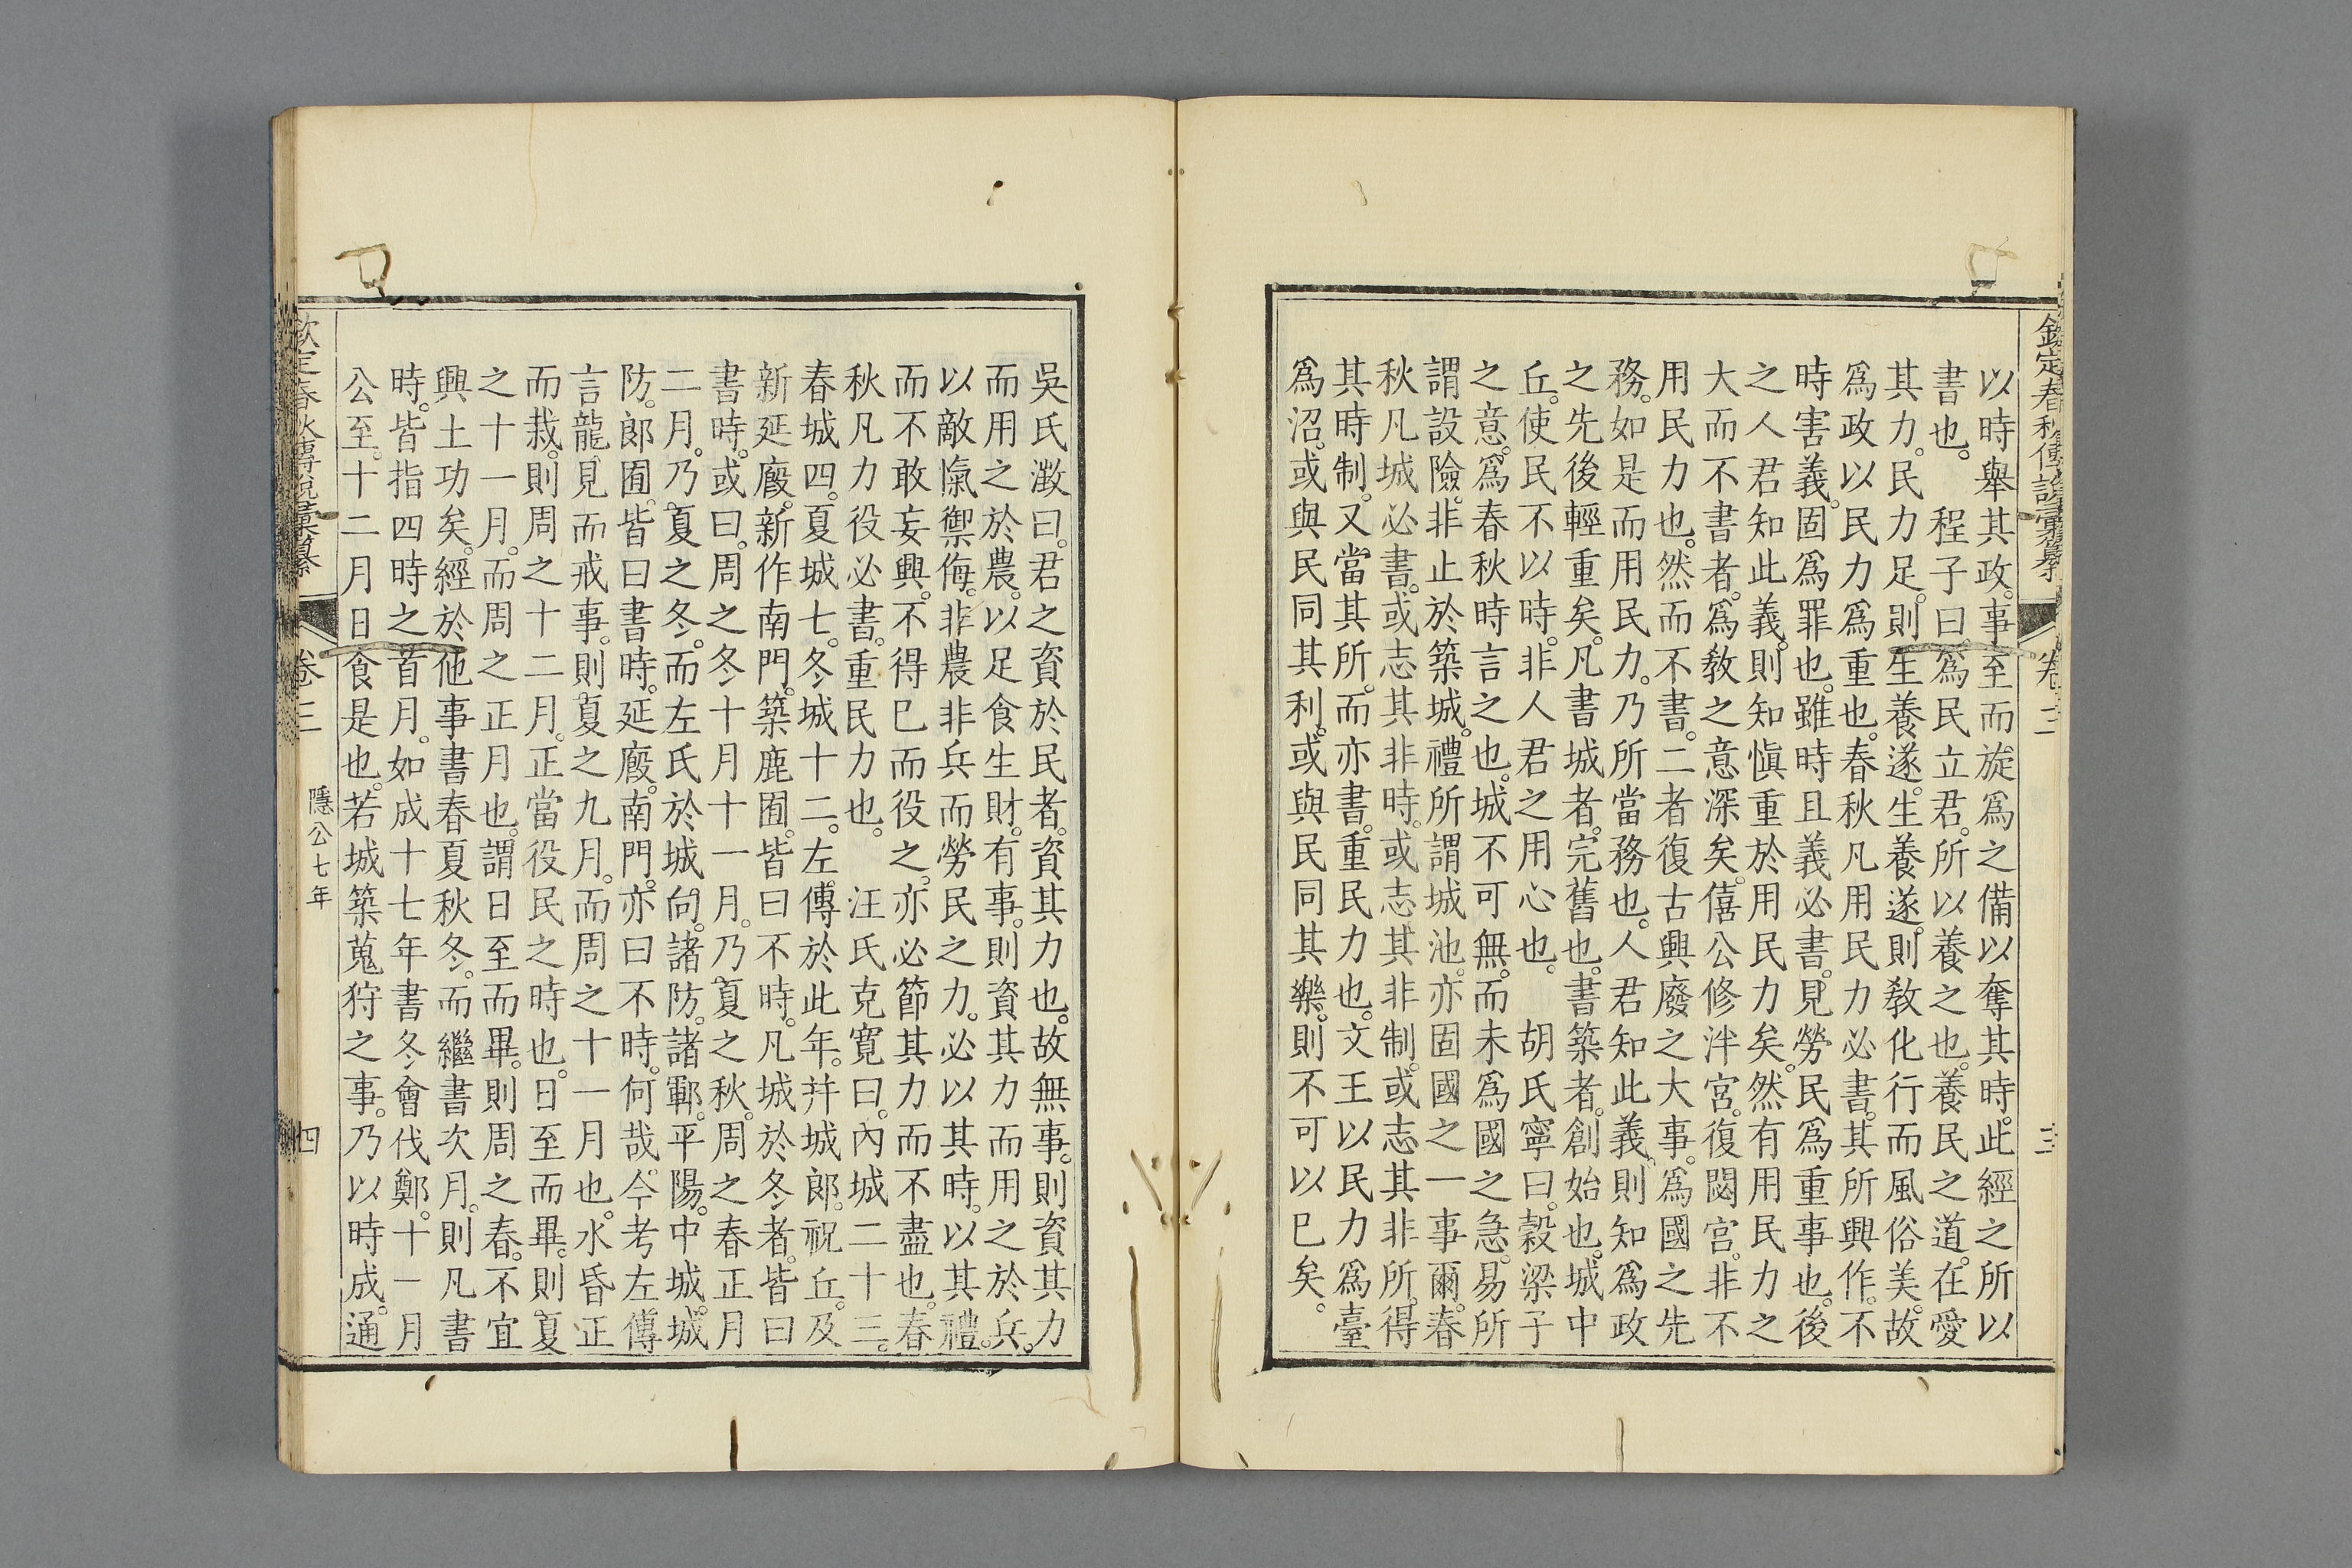 欽定春秋傳說彙纂 卷三 三
以時舉其政。事至而旋爲之備以奪其時。此經之所以
書也。　程子曰。爲民立君。所以養之也。養民之道。在愛
其力。民力足。則生養遂。生養遂。則教化行而風俗美。故
爲政以民力爲重也。春秋凡用民力必書。其所興作。不
時害義。固爲罪也。雖時且義必書。見勞民爲重事也。後
之人君知此義。則知愼重於用民力矣。然有用民力之
大而不書者。爲敎之意深矣。僖公修泮宮。復閟宮。非不
用民力也。然而不書。二者復古興廢之大事。爲國之先
務。如是而用民力。乃所當務也。人君知此義。則知爲政
之先後輕重矣。凡書城者。完舊也。書築者。創始也。城中
丘。使民不以時。非人君之用心也。　胡氏寧曰。穀梁子
之意。爲春秋時言之也。城不可無。而未爲國之急。易所
謂設險。非止於築城。禮所謂城池。亦固國之一事爾。春
秋凡城必書。或志其非時。或志其非制。或志其非所。得
其時制。又當其所。而亦書。重民力也。文王以民力爲臺
爲沼。或與民同其利。或與民同其樂。則不可以已矣。
吳氏澂曰。君之資於民者。資其力也。故無事。則資其力
而用之於農。以足食生財。有事。則資其力而用之於兵。
以敵愾禦侮。非農非兵而勞民之力。必以其時。以其禮。
而不敢妄興。不得已而役之。亦必節其力而不盡也。春
秋凡力役必書。重民力也。　汪氏克寬曰。內城二十三。
春城四。夏城七。冬城十二。左傳於此年。幷城郎。祝丘。及
新延廄。新作南門。築鹿囿。皆曰不時。凡城於冬者。皆曰
書時。或曰。周之冬十月十一月。乃夏之秋。周之春正月
二月。乃夏之冬。而左氏於城向。諸防。諸鄆。平陽。中城。城
防。郎囿。皆曰書時。延廄。南門。亦曰不時。何哉。今考左傳
言龍見而戒事。則夏之九月。而周之十一月也。水昏正
而栽。則周之十二月。正當役民之時也。日至而畢。則夏
之十一月。而周之正月也。謂日至而畢。則周之春。不宜
興土功矣。經於他事書春夏秋冬。而繼書次月。則凡書
時。皆指四時之首月。如成十七年書冬會伐鄭。十一月
公至。十二月日食是也。若城築蒐狩之事。乃以時成。通
欽定春秋傳說彙纂 卷三 隱公七年 四